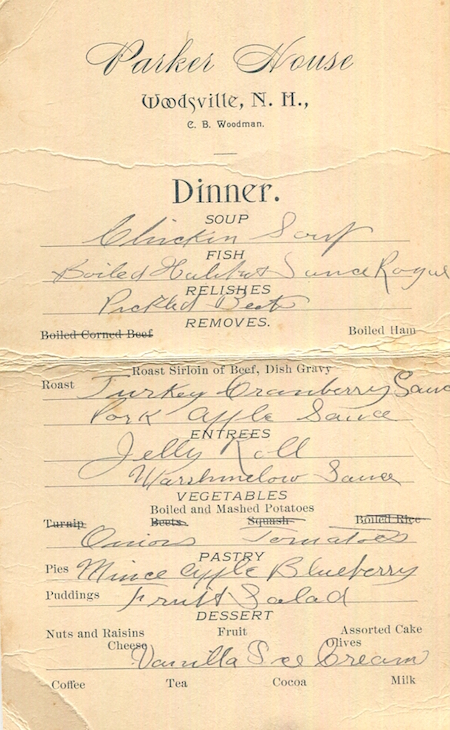 Parker House
Woodsville, N. H.,
C. B. Woodman.
Dinner.
SOUP
Chicken Soup
FISH
Boiled Halibut Sauce
RELISHES
Pickled Beet
REMOVES.
Boiled Corned Beef Boiled Ham
Roast Sirloin of Beef, Dish Gravy
Roast Turkey Cranberry Sauc
Pork Apple Sauce
ENTREES
Jelly Roll
Marshmelow Sauce
VEGETABLES
Boiled and Mashed Potatoes
Turnip Beets Squash Boiled Rice
Onions Tomatoes
PASTRY
Pies Mince Apple Blueberry
Puddings Fruit Salad
DESSERT
Nuts and Raisins Fruit Assorted Cake
Cheese Olives
Vanilla Ice Cream
Coffee Tea Cocoa Milk